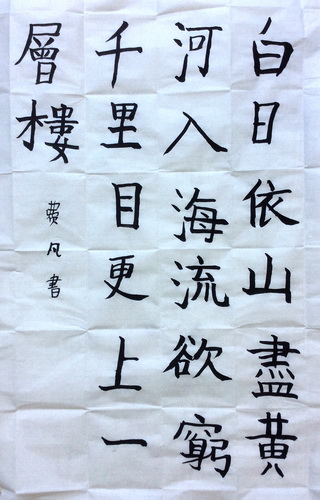 白日依山盡黄
河入海流欲窮
千里目更上一
層樓
費凡書